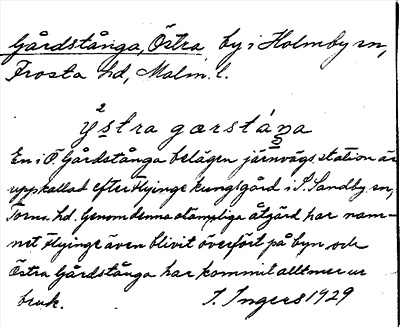 Gårdstånga, Östra, by i Holmby sn,
Frosta hd, Malm. l.
2
ÿstra gærstána
2
En i Ö. Gårdstånga belägen järnvägsstation är
uppkallad efter Flyinge kungsgård i S. Sandby sn,
Torna hd. Genom denna olämpliga åtgärd har nam-
net Flyinge även blivit överfört på byn, och
Östra Gårdstånga har kommit alltmer ur
bruk. I. Ingers 1929